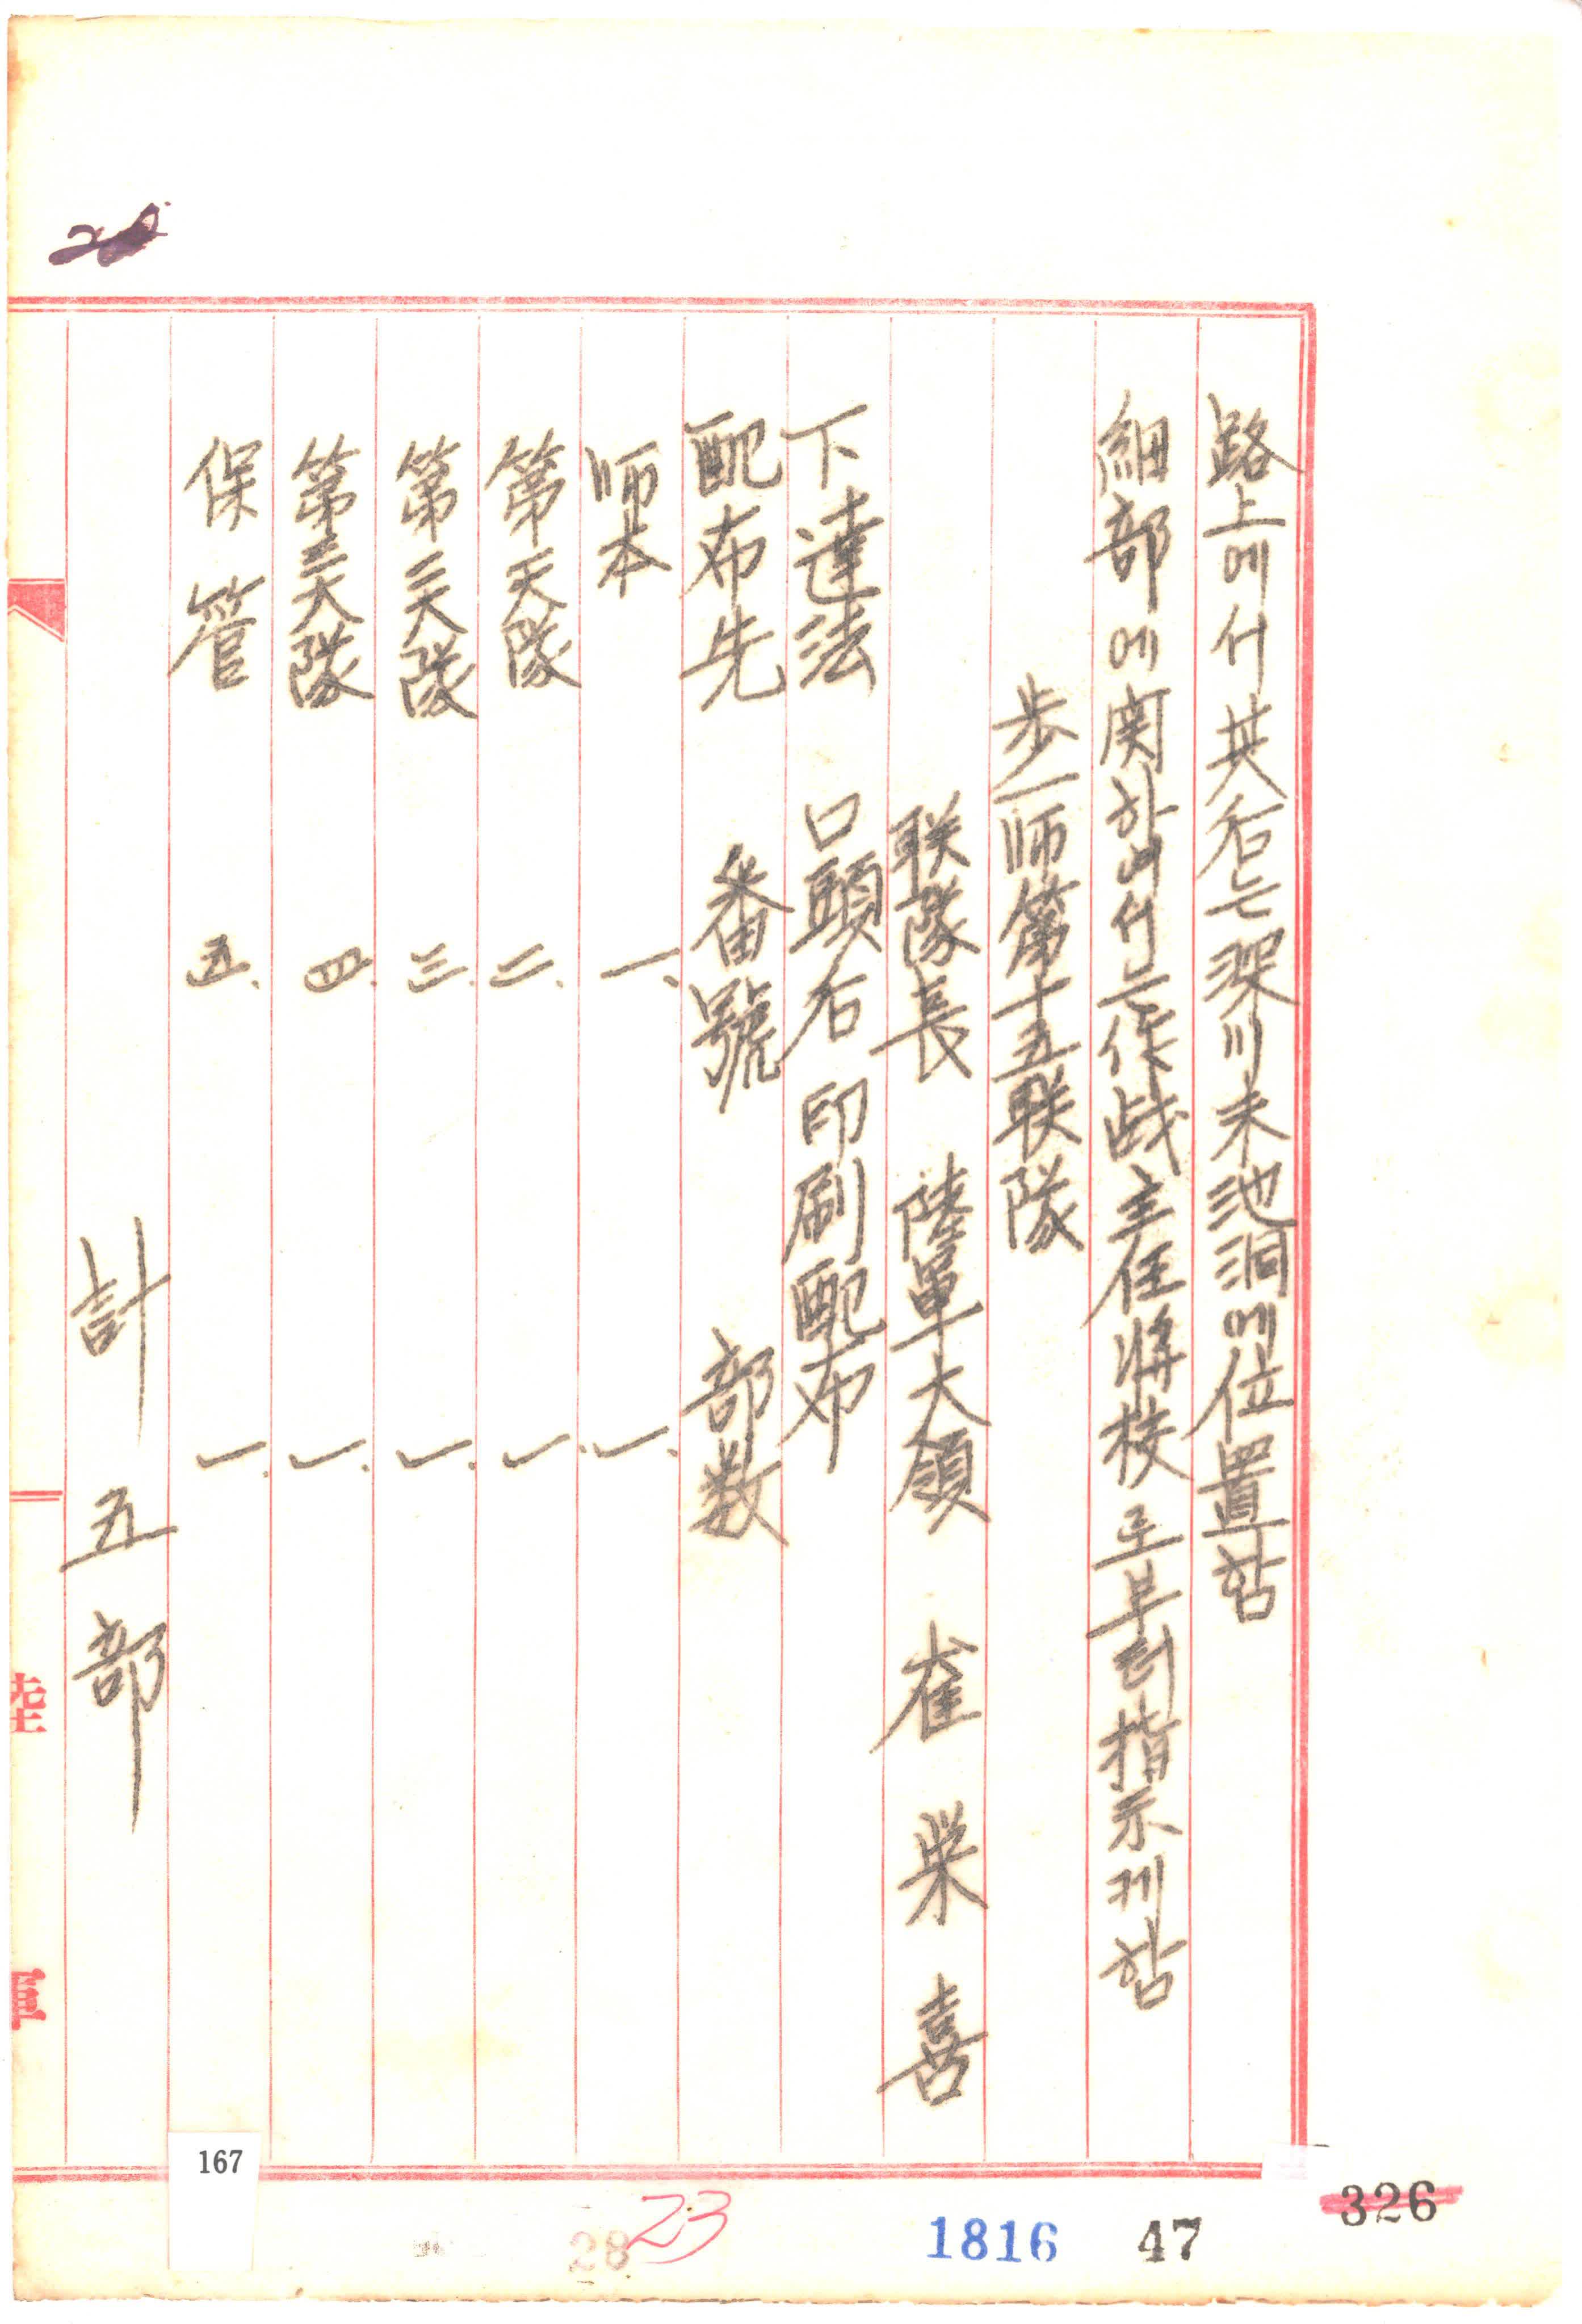 路上에서 其后는 深川未池洞에 位置함
細部에 関하여서는 作战主任将校로부터 指示케함
步一师第十五联隊
联隊長 陸軍大領 崔栄喜
下達法 口頭后 印刷配布
配布先 番號 部数
师本 一、 一、
第一大隊 二、 一、
第二大隊 三、 一、
第三大隊 四、 一、
保管 五、 一、
計 五部
陸軍
167
28
23
1816
47
326